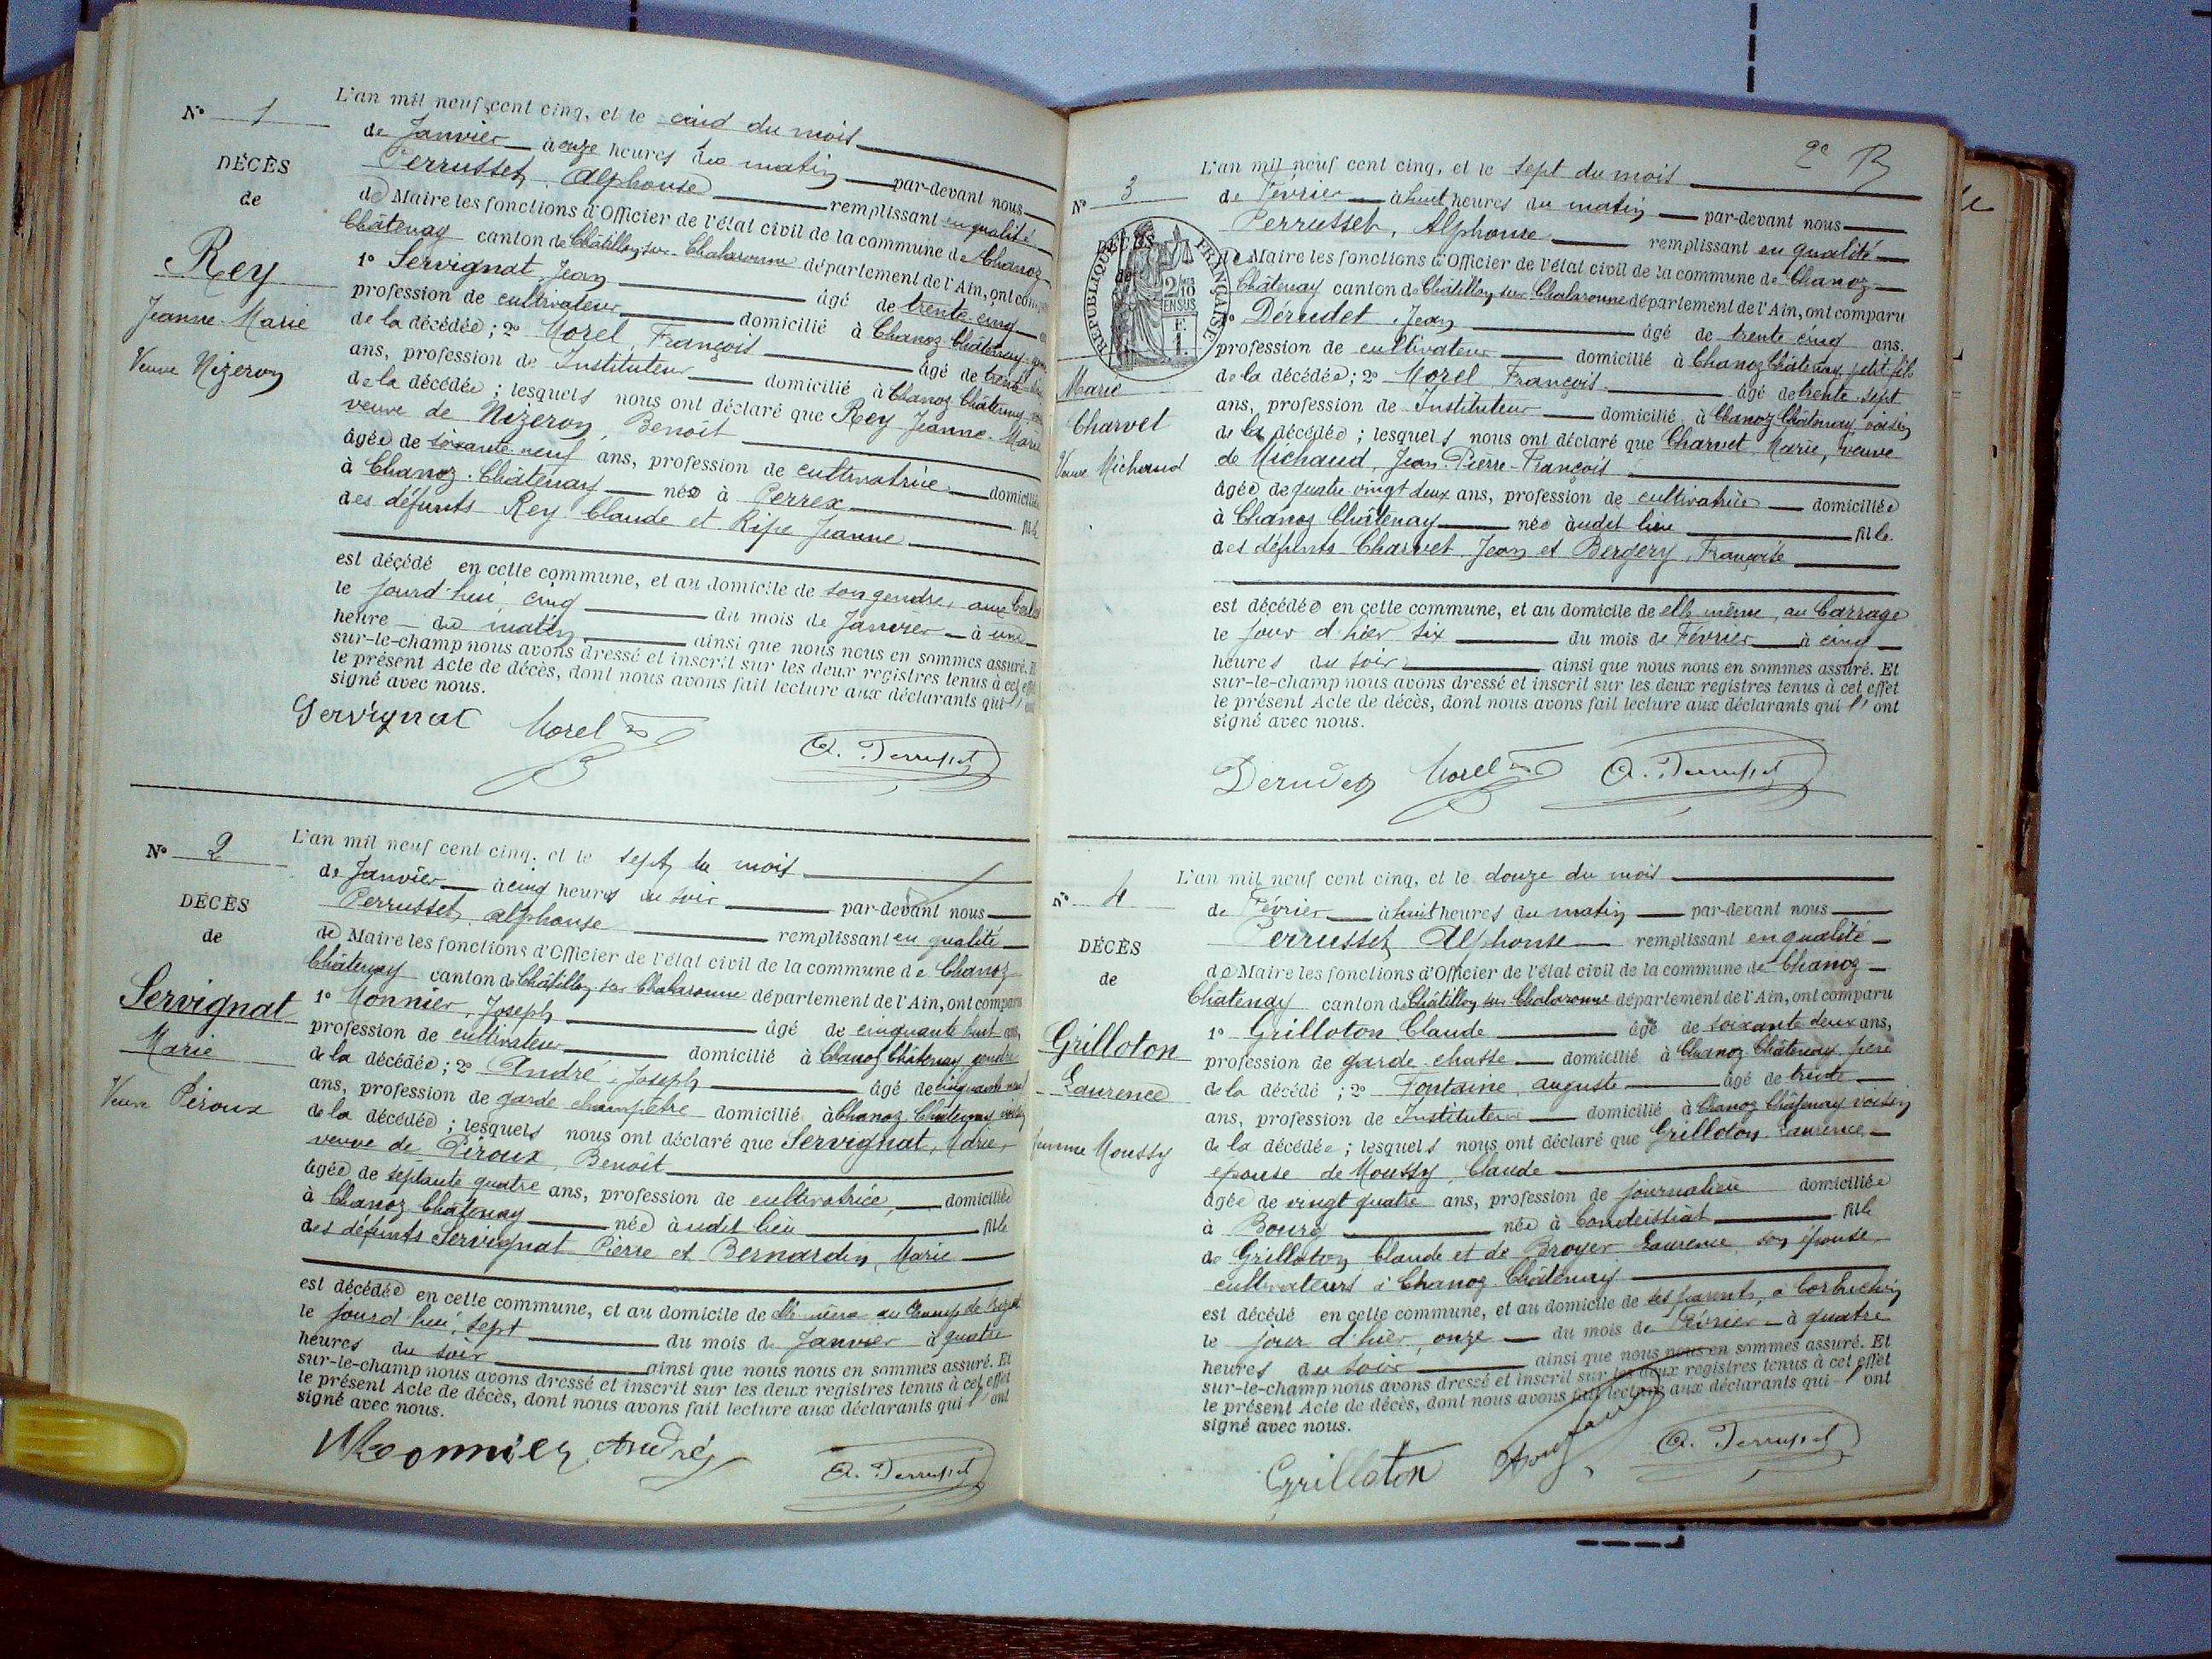 N° 1
DÉCÈS
de
Rey
Jeanne-Marie
Veuve Nizeron
L'an mil neuf cent cinq, et le cinq du mois
de Janvier à onze heures du matin par-devant nous
Perrusset, Alphonse remplissant en qualité
de Maire les fonctions d'Officier de l'état civil de la commune de Chanoz
Châtenay canton de Châtillon sur Chalaronne département de l'Ain, ont comparu
1° Servignat Jean âgé de trente cinq
profession de cultivateur domicilié à Chanoz Châtenay
de la décédée ; 2° Morel, François âgé de trente
ans, profession de Instituteur domicilié à Chanoz Châtenay
de la décédée ; lesquels nous ont déclaré que Rey Jeanne-Marie
veuve de Nizeron, Benoît
âgée de soixante neuf ans, profession de cultivatrice domiciliée
à Chanoz-Châtenay née à Perrex fille
des défunts Rey Claude et Ripe Jeanne
est décédé en cette commune, et au domicile de son gendre,
le jourd'hui, cinq du mois de Janvier à une
heure du matin ainsi que nous nous en sommes assuré. Et
sur-le-champ nous avons dressé et inscrit sur les deux registres tenus à cet effet
le présent Acte de décès, dont nous avons fait lecture aux déclarants qui l'ont
signé avec nous.
Servignat Morel A. Perrusset
N° 2
DÉCÈS
de
Servignat
Marie
Veuve Péroux
L'an mil neuf cent cinq, et le sept du mois
de Janvier à cinq heures du soir par-devant nous
Perrusset, alphonse remplissant en qualité
de Maire les fonctions d'Officier de l'état civil de la commune de Chanoz
Châtenay canton de Châtillon sur Chalaronne département de l'Ain, ont comparu
1° Monnier, Joseph âgé de cinquante huit ans,
profession de cultivateur domicilié à Chanoz Châtenay gendre
de la décédée ; 2° André, Joseph âgé de cinquante
ans, profession de garde champêtre domicilié à Chanoz Châtenay voisin
de la décédée ; lesquels nous ont déclaré que Servignat, Marie,
veuve de Péroux, Benoît
âgée de septante quatre ans, profession de cultivatrice, domiciliée
à Chanoz Châtenay née à udit lieu fille
des défunts Servignat Pierre et Bernardin, Marie
est décédée en cette commune, et au domicile de elle-même au Champ de
le jourd'hui, sept du mois de Janvier à quatre
heures du soir ainsi que nous nous en sommes assuré. Et
sur-le-champ nous avons dressé et inscrit sur les deux registres tenus à cet effet
le présent Acte de décès, dont nous avons fait lecture aux déclarants qui l'ont
signé avec nous.
Monnier André A. Perrusset
2e
N° 3
DÉCÈS
de
RÉPUBLIQUE FRANÇAISE
2/10
EN SUS
Marie
Charvet
Veuve Michaud
L'an mil neuf cent cinq, et le sept du mois
de Février à huit heures du matin par-devant nous
Perrusset, Alphonse remplissant en qualité
de Maire les fonctions d'Officier de l'état civil de la commune de Chanoz
Châtenay canton de Châtillon sur Chalaronne département de l'Ain, ont comparu
1° Dérudet, Jean âgé de trente cinq ans,
profession de cultivateur domicilié à Chanoz Châtenay, petit-fils
de la décédée ; 2° Morel François âgé de trente-sept
ans, profession de Instituteur domicilié à Chanoz Châtenay voisin
de la décédée ; lesquels nous ont déclaré que Charvet Marie, veuve
de Michaud, Jean-Pierre-François
âgée de quatre vingt deux ans, profession de cultivatrice domiciliée
à Chanoz Châtenay née à udit lieu fille
des défunts Charvet Jean et Bergery, Françoise
est décédée en cette commune, et au domicile de elle même, au Carrage
le jour d'hier six du mois de Février à cinq
heures du soir ainsi que nous nous en sommes assuré. Et
sur-le-champ nous avons dressé et inscrit sur les deux registres tenus à cet effet
le présent Acte de décès, dont nous avons fait lecture aux déclarants qui l'ont
signé avec nous.
Derudet Morel A. Perrusset
N° 4
DÉCÈS
de
Grilloton
Laurence
Femme Moussy
L'an mil neuf cent cinq, et le douze du mois
de Février à huit heures du matin par-devant nous
Perrusset, Alphonse remplissant en qualité
de Maire les fonctions d'Officier de l'état civil de la commune de Chanoz
Châtenay canton de Châtillon sur Chalaronne département de l'Ain, ont comparu
1° Grilloton Claude âgé de soixante deux ans,
profession de garde-chasse domicilié à Chanoz Châtenay, père
de la décédé ; 2° Fontaine, auguste âgé de trente
ans, profession de Instituteur domicilié à Chanoz Châtenay voisin
de la décédée ; lesquels nous ont déclaré que Grilloton Laurence
épouse de Moussy, Claude
âgée de vingt quatre ans, profession de journalière domiciliée
à Bourg née à Condeissiat fille
de Grilloton Claude et de Broyer Laurence son épouse
cultivateurs à Chanoz Châtenay
est décédé en cette commune, et au domicile de ses parents, à
le jour d'hier, onze du mois de Février à quatre
heures du soir ainsi que nous nous en sommes assuré. Et
sur-le-champ nous avons dressé et inscrit sur les deux registres tenus à cet effet
le présent Acte de décès, dont nous avons fait lecture aux déclarants qui l'ont
signé avec nous.
Grilloton A. Perrusset